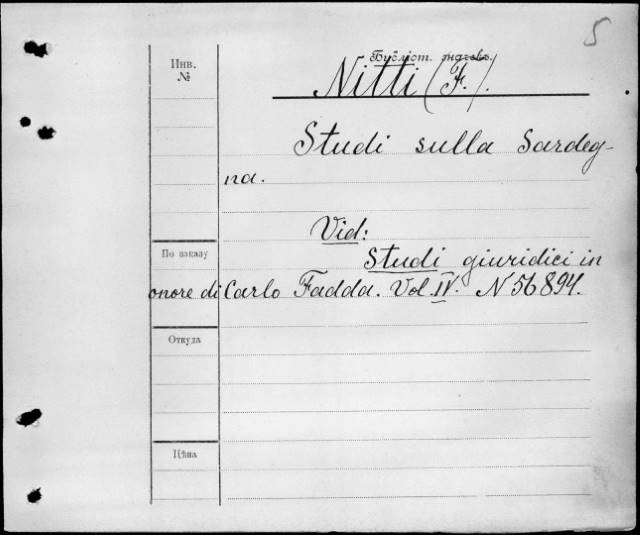 5
Инв.
№
Nitti (F.).
Studi sulla Sardeg-
na.
Vid:
По заказу
Studi giuridici in
onore di Carlo Fadda. Vol. IV. N 56894.
Откуда
Цѣна